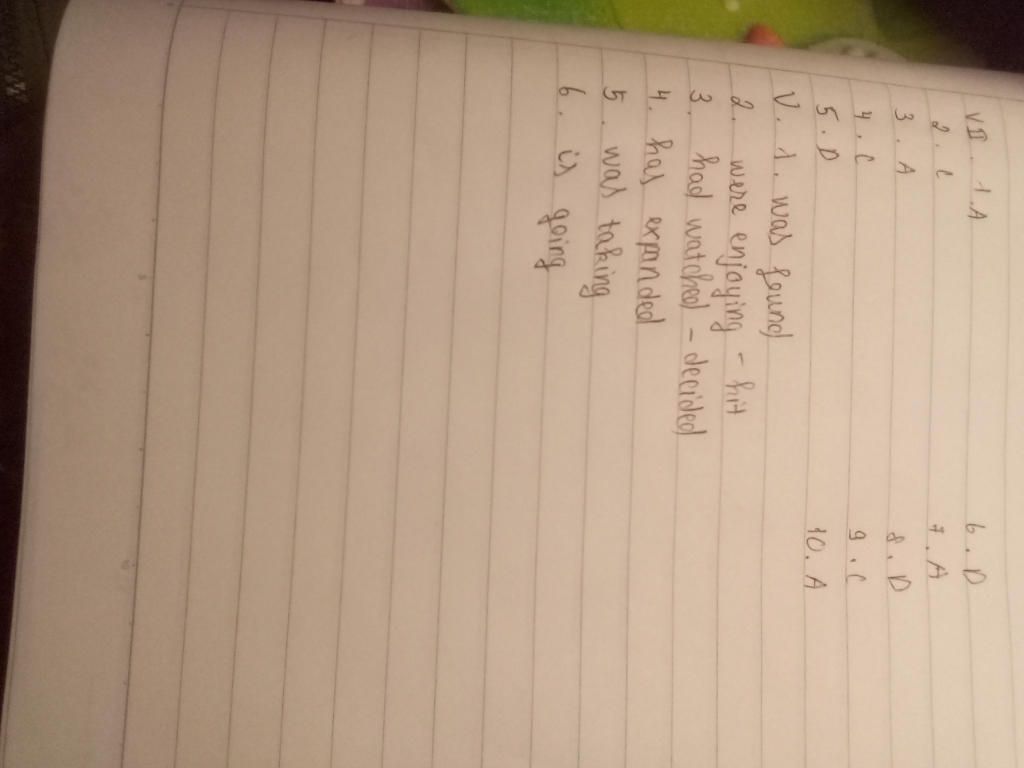 VII. 1.A 6.D
2.C 7.A
3.A 8.D
4.C 9.C
5.D 10.A
V. 1. was found
2. were enjaying - hit
3. had watched - decided
4. has expanded
5. was taking
6. is going